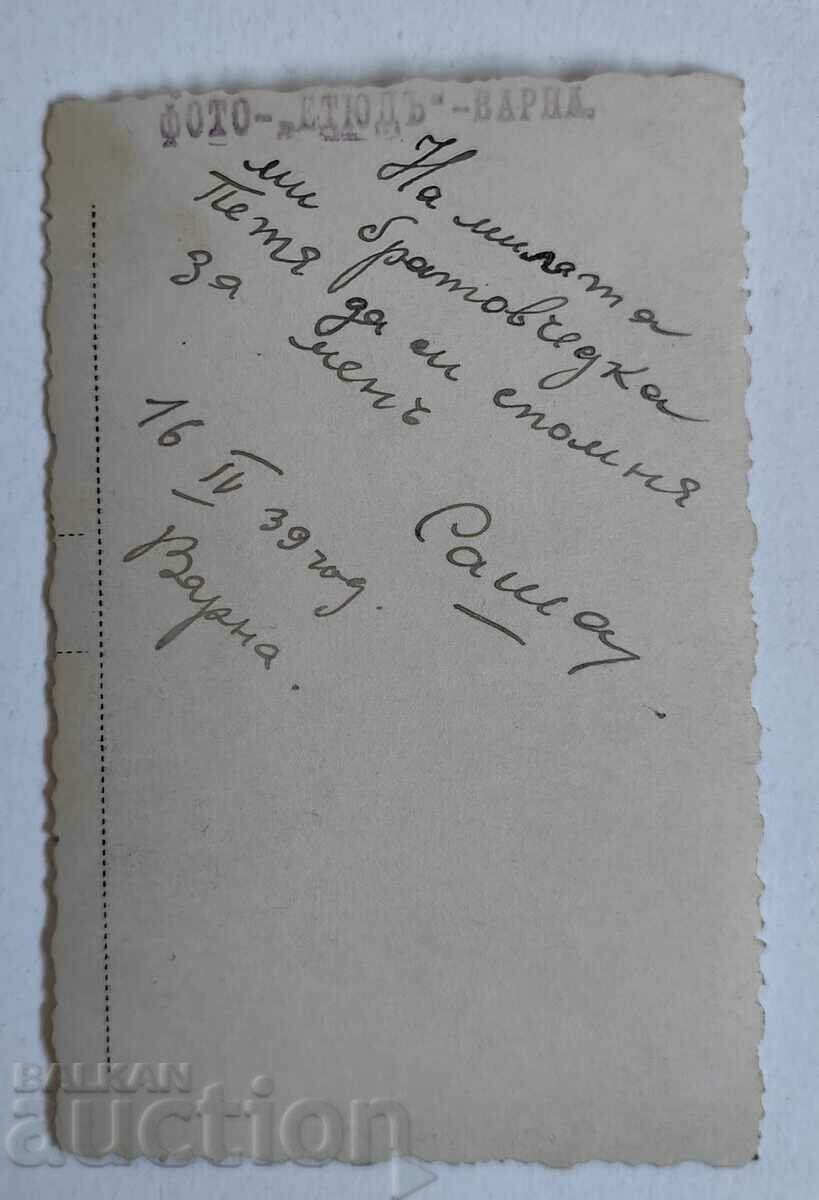 ФОТО-„ЕТЮДЪ“-ВАРНА.
На милата
ми братовчедка
Петя да си спомня
за менъ
Саша.
16 IV 39 год.
Варна.
BALKAN
auction